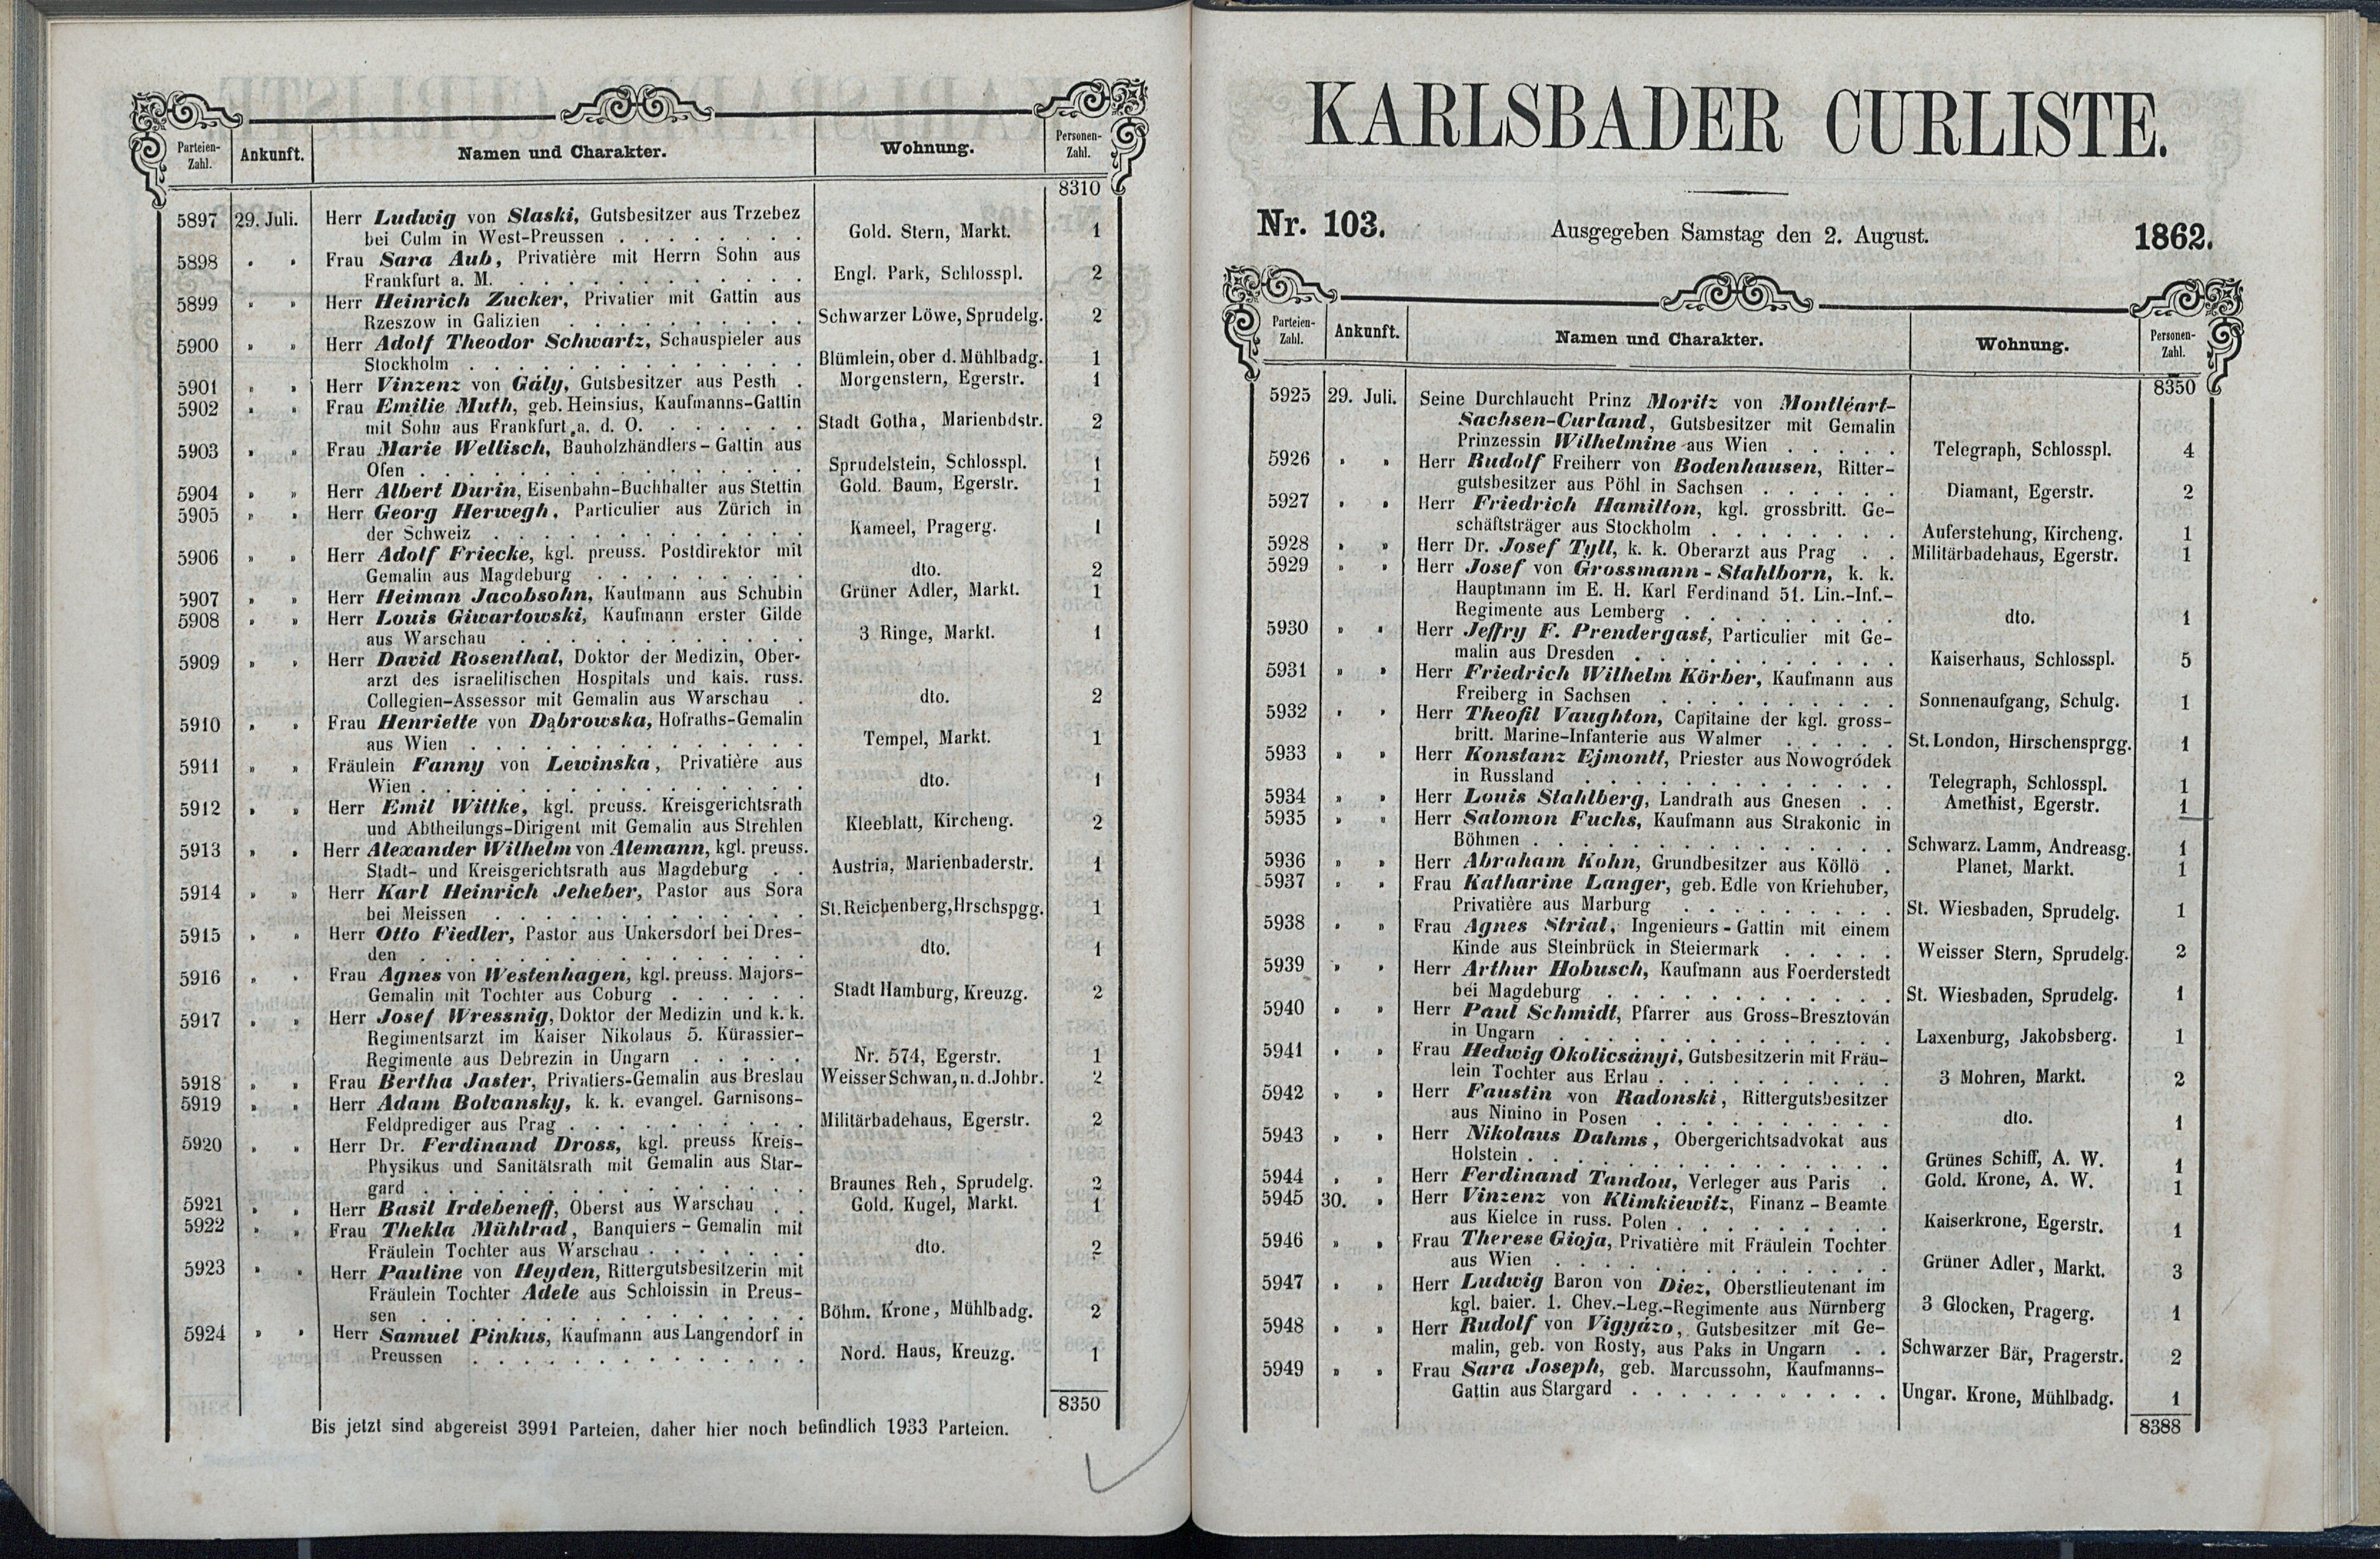 Parteien-Zahl. Ankunft. Namen und Charakter. Wohnung. Personen-Zahl.
8310
5897 29. Juli. Herr Ludwig von Slaski, Gutsbesitzer aus Trzebez
bei Culm in West-Preussen . . . . . . . . Gold. Stern, Markt. 1
5898 „ „ Frau Sara Aub, Privatière mit Herrn Sohn aus
Frankfurt a. M. . . . . . . . . . . . . Engl. Park, Schlosspl. 2
5899 „ „ Herr Heinrich Zucker, Privatier mit Gattin aus
Rzeszow in Galizien . . . . . . . . . . Schwarzer Löwe, Sprudelg. 2
5900 „ „ Herr Adolf Theodor Schwartz, Schauspieler aus
Stockholm . . . . . . . . . . . . . . Blümlein, ober d. Mühlbadg. 1
5901 „ „ Herr Vinzenz von Gály, Gutsbesitzer aus Pesth . Morgenstern, Egerstr. 1
5902 „ „ Frau Emilie Muth, geb. Heinsius, Kaufmanns-Gattin
mit Sohn aus Frankfurt a. d. O. . . . . . . Stadt Gotha, Marienbdstr. 2
5903 „ „ Frau Marie Wellisch, Bauholzhändlers-Gattin aus
Ofen . . . . . . . . . . . . . . . . Sprudelstein, Schlosspl. 1
5904 „ „ Herr Albert Durin, Eisenbahn-Buchhalter aus Stettin Gold. Baum, Egerstr. 1
5905 „ „ Herr Georg Herwegh, Particulier aus Zürich in
der Schweiz . . . . . . . . . . . . . Kameel, Pragerg. 1
5906 „ „ Herr Adolf Friecke, kgl. preuss. Postdirektor mit
Gemalin aus Magdeburg . . . . . . . . . dto. 2
5907 „ „ Herr Heiman Jacobsohn, Kaufmann aus Schubin Grüner Adler, Markt. 1
5908 „ „ Herr Louis Giwartowski, Kaufmann erster Gilde
aus Warschau . . . . . . . . . . . . 3 Ringe, Markt. 1
5909 „ „ Herr David Rosenthal, Doktor der Medizin, Ober-
arzt des israelitischen Hospitals und kais. russ.
Collegien-Assessor mit Gemalin aus Warschau . dto. 2
5910 „ „ Frau Henriette von Dąbrowska, Hofraths-Gemalin
aus Wien . . . . . . . . . . . . . . Tempel, Markt. 1
5911 „ „ Fräulein Fanny von Lewinska, Privatière aus
Wien . . . . . . . . . . . . . . . . dto. 1
5912 „ „ Herr Emil Wittke, kgl. preuss. Kreisgerichtsrath
und Abtheilungs-Dirigent mit Gemalin aus Strehlen Kleeblatt, Kircheng. 2
5913 „ „ Herr Alexander Wilhelm von Alemann, kgl. preuss.
Stadt- und Kreisgerichtsrath aus Magdeburg . . Austria, Marienbaderstr. 1
5914 „ „ Herr Karl Heinrich Jeheber, Pastor aus Sora
bei Meissen . . . . . . . . . . . . . St. Reichenberg, Hrschspgg. 1
5915 „ „ Herr Otto Fiedler, Pastor aus Unkersdorf bei Dres-
den . . . . . . . . . . . . . . . . dto. 1
5916 „ „ Frau Agnes von Westenhagen, kgl. preuss. Majors-
Gemalin mit Tochter aus Coburg . . . . . . Stadt Hamburg, Kreuzg. 2
5917 „ „ Herr Josef Wressnig, Doktor der Medizin und k. k.
Regimentsarzt im Kaiser Nikolaus 5. Kürassier-
Regimente aus Debrezin in Ungarn . . . . . Nr. 574, Egerstr. 1
5918 „ „ Frau Bertha Jaster, Privatiers-Gemalin aus Breslau Weisser Schwan, n. d. Johbr. 2
5919 „ „ Herr Adam Bolvansky, k. k. evangel. Garnisons-
Feldprediger aus Prag . . . . . . . . . . Militärbadehaus, Egerstr. 2
5920 „ „ Herr Dr. Ferdinand Dross, kgl. preuss Kreis-
Physikus und Sanitätsrath mit Gemalin aus Star-
gard . . . . . . . . . . . . . . . . Braunes Reh, Sprudelg. 2
5921 „ „ Herr Basil Irdebeneff, Oberst aus Warschau . . Gold. Kugel, Markt. 1
5922 „ „ Frau Thekla Mühlrad, Banquiers-Gemalin mit
Fräulein Tochter aus Warschau . . . . . . . dto. 2
5923 „ „ Herr Pauline von Heyden, Rittergutsbesitzerin mit
Fräulein Tochter Adele aus Schloissin in Preus-
sen . . . . . . . . . . . . . . . . Böhm. Krone, Mühlbadg. 2
5924 „ „ Herr Samuel Pinkus, Kaufmann aus Langendorf in
Preussen . . . . . . . . . . . . . . Nord. Haus, Kreuzg. 1
8350
Bis jetzt sind abgereist 3991 Parteien, daher hier noch befindlich 1933 Parteien.
KARLSBADER CURLISTE.
Nr. 103. Ausgegeben Samstag den 2. August. 1862.
Parteien-Zahl. Ankunft. Namen und Charakter. Wohnung. Personen-Zahl.
8350
5925 29. Juli. Seine Durchlaucht Prinz Moritz von Montléart-
Sachsen-Curland, Gutsbesitzer mit Gemalin
Prinzessin Wilhelmine aus Wien . . . . . Telegraph, Schlosspl. 4
5926 „ „ Herr Rudolf Freiherr von Bodenhausen, Ritter-
gutsbesitzer aus Pöhl in Sachsen . . . . . . Diamant, Egerstr. 2
5927 „ „ Herr Friedrich Hamilton, kgl. grossbritt. Ge-
schäftsträger aus Stockholm . . . . . . . . Auferstehung, Kircheng. 1
5928 „ „ Herr Dr. Josef Tyll, k. k. Oberarzt aus Prag . . Militärbadehaus, Egerstr. 1
5929 „ „ Herr Josef von Grossmann-Stahlborn, k. k.
Hauptmann im E. H. Karl Ferdinand 51. Lin.-Inf.-
Regimente aus Lemberg . . . . . . . . . dto. 1
5930 „ „ Herr Jeffry F. Prendergast, Particulier mit Ge-
malin aus Dresden . . . . . . . . . . . Kaiserhaus, Schlosspl. 5
5931 „ „ Herr Friedrich Wilhelm Körber, Kaufmann aus
Freiberg in Sachsen . . . . . . . . . . Sonnenaufgang, Schulg. 1
5932 „ „ Herr Theofil Vaughton, Capitaine der kgl. gross-
britt. Marine-Infanterie aus Walmer . . . . . St. London, Hirschensprgg. 1
5933 „ „ Herr Konstanz Ejmontt, Priester aus Nowogródek
in Russland . . . . . . . . . . . . . Telegraph, Schlosspl. 1
5934 „ „ Herr Louis Stahlberg, Landrath aus Gnesen . . Amethist, Egerstr. 1
5935 „ „ Herr Salomon Fuchs, Kaufmann aus Strakonic in
Böhmen . . . . . . . . . . . . . . . Schwarz. Lamm, Andreasg. 1
5936 „ „ Herr Abraham Kohn, Grundbesitzer aus Köllö . Planet, Markt. 1
5937 „ „ Frau Katharine Langer, geb. Edle von Kriehuber,
Privatière aus Marburg . . . . . . . . . St. Wiesbaden, Sprudelg. 1
5938 „ „ Frau Agnes Strial, Ingenieurs-Gattin mit einem
Kinde aus Steinbrück in Steiermark . . . . . Weisser Stern, Sprudelg. 2
5939 „ „ Herr Arthur Hobusch, Kaufmann aus Foerderstedt
bei Magdeburg . . . . . . . . . . . . St. Wiesbaden, Sprudelg. 1
5940 „ „ Herr Paul Schmidt, Pfarrer aus Gross-Bresztován
in Ungarn . . . . . . . . . . . . . . Laxenburg, Jakobsberg. 1
5941 „ „ Frau Hedwig Okolicsányi, Gutsbesitzerin mit Fräu-
lein Tochter aus Erlau . . . . . . . . . . 3 Mohren, Markt. 2
5942 „ „ Herr Faustin von Radonski, Rittergutsbesitzer
aus Ninino in Posen . . . . . . . . . . dto. 1
5943 „ „ Herr Nikolaus Dahms, Obergerichtsadvokat aus
Holstein . . . . . . . . . . . . . . . Grünes Schiff, A. W. 1
5944 „ „ Herr Ferdinand Tandou, Verleger aus Paris . Gold. Krone, A. W. 1
5945 30. „ Herr Vinzenz von Klimkiewitz, Finanz-Beamte
aus Kielce in russ. Polen . . . . . . . . . Kaiserkrone, Egerstr. 1
5946 „ „ Frau Therese Gioja, Privatière mit Fräulein Tochter
aus Wien . . . . . . . . . . . . . . Grüner Adler, Markt. 3
5947 „ „ Herr Ludwig Baron von Diez, Oberstlieutenant im
kgl. baier. 1. Chev.-Leg.-Regimente aus Nürnberg 3 Glocken, Pragerg. 1
5948 „ „ Herr Rudolf von Vigyázo, Gutsbesitzer mit Ge-
malin, geb. von Rosty, aus Paks in Ungarn . . Schwarzer Bär, Pragerstr. 2
5949 „ „ Frau Sara Joseph, geb. Marcussohn, Kaufmanns-
Gattin aus Stargard . . . . . . . . . . . Ungar. Krone, Mühlbadg. 1
8388